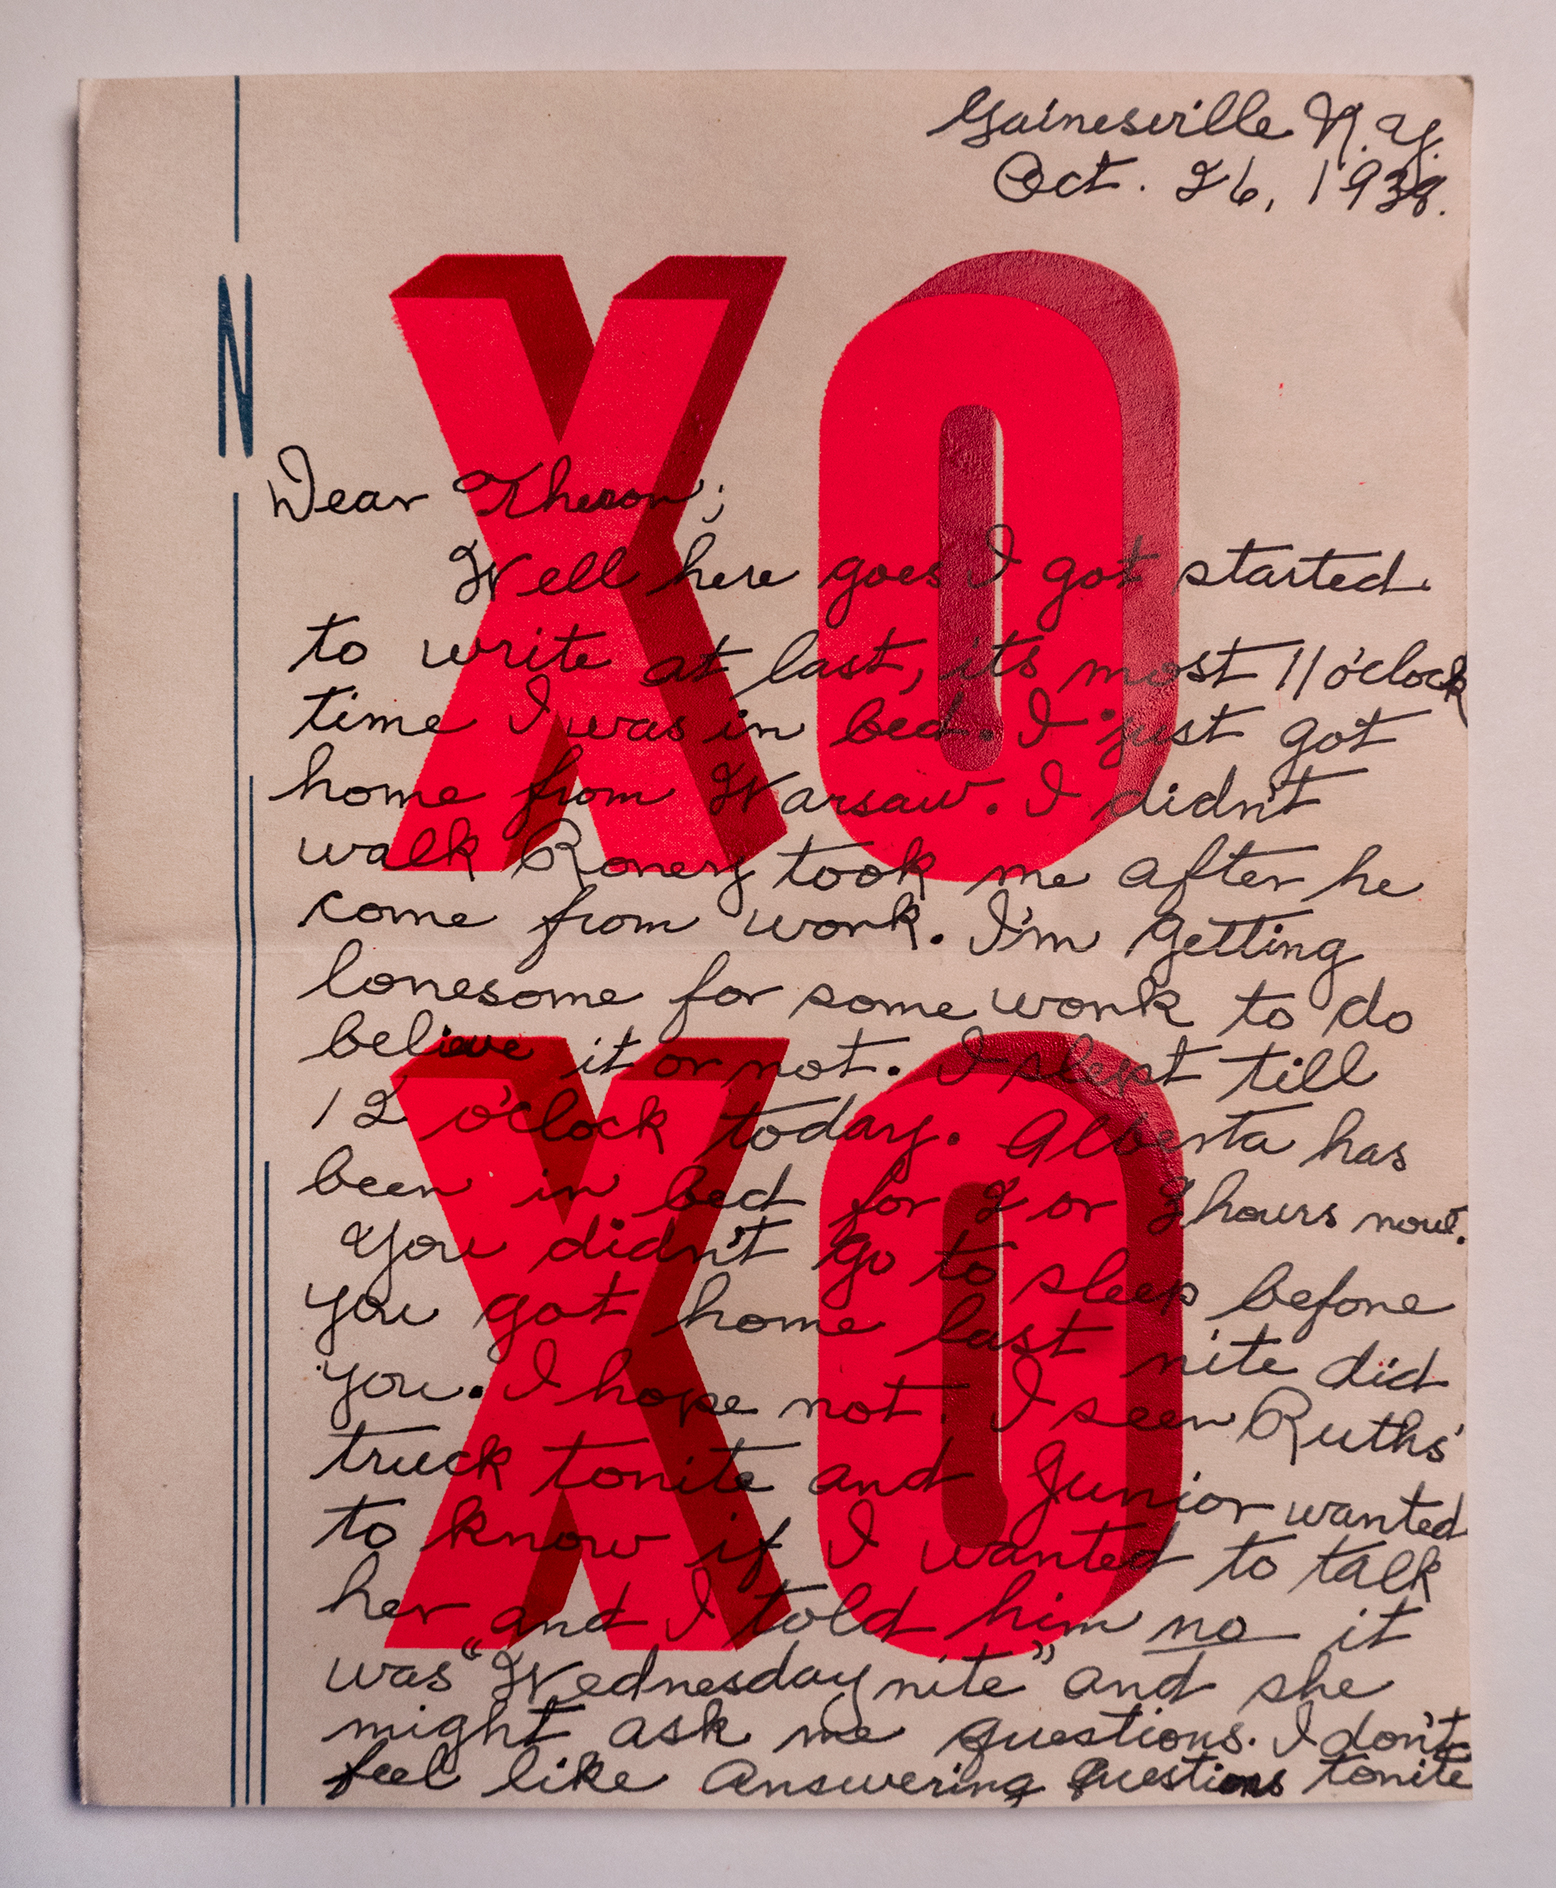 Gainesville N.Y.
Oct. 26, 1938.
XO
N
Dear Theron;
Well here goes I got started
to write at last, its most 11 o'clock
time I was in bed. I just got
home from Warsaw. I didn't
walk Roney took me after he
come from work. I'm getting
lonesome for some work to do
believe it or not. I slept till
12 o'clock today. Alberta has
been in bed for 2 or 3 hours now.
You didn't go to sleep before
you got home last nite did
you. I hope not. I seen Ruths'
truck tonite and Junior wanted
to know if I wanted to talk
her and I told him no it
was "Wednesday nite" and she
might ask me questions. I don't
feel like answering questions tonite
XO